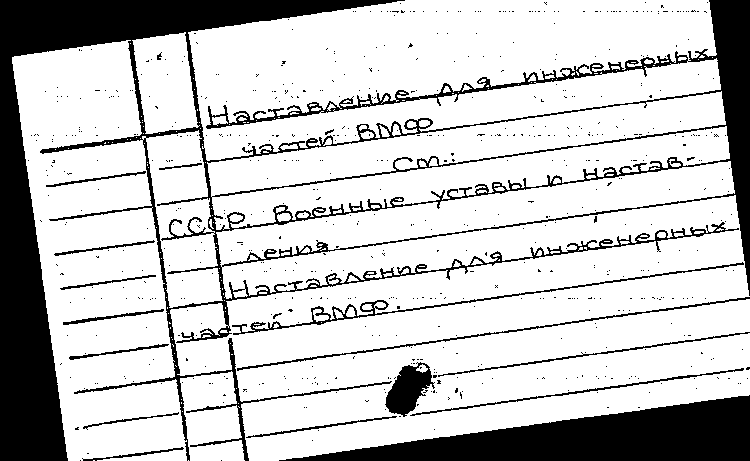 Наставление для инженерных
частей ВМФ
См.:
СССР. Военные уставы и настав-
ления.
Наставление для инженерных
частей ВМФ.